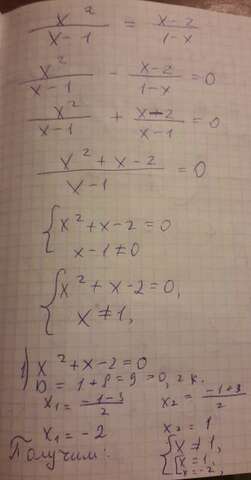 x²/(x-1) = (x-2)/(1-x)
x²/(x-1) - (x-2)/(1-x) = 0
x²/(x-1) + (x-2)/(x-1) = 0
(x²+x-2)/(x-1) = 0
{ x²+x-2=0
x-1≠0
{ x²+x-2=0,
x≠1,
1) x²+x-2=0
D=1+8=9>0, 2 к.
x₁=(-1-3)/2 x₂=(-1+3)/2
x₁=-2 x₂=1
Получим: { x≠1,
[ x=1,
x=-2,